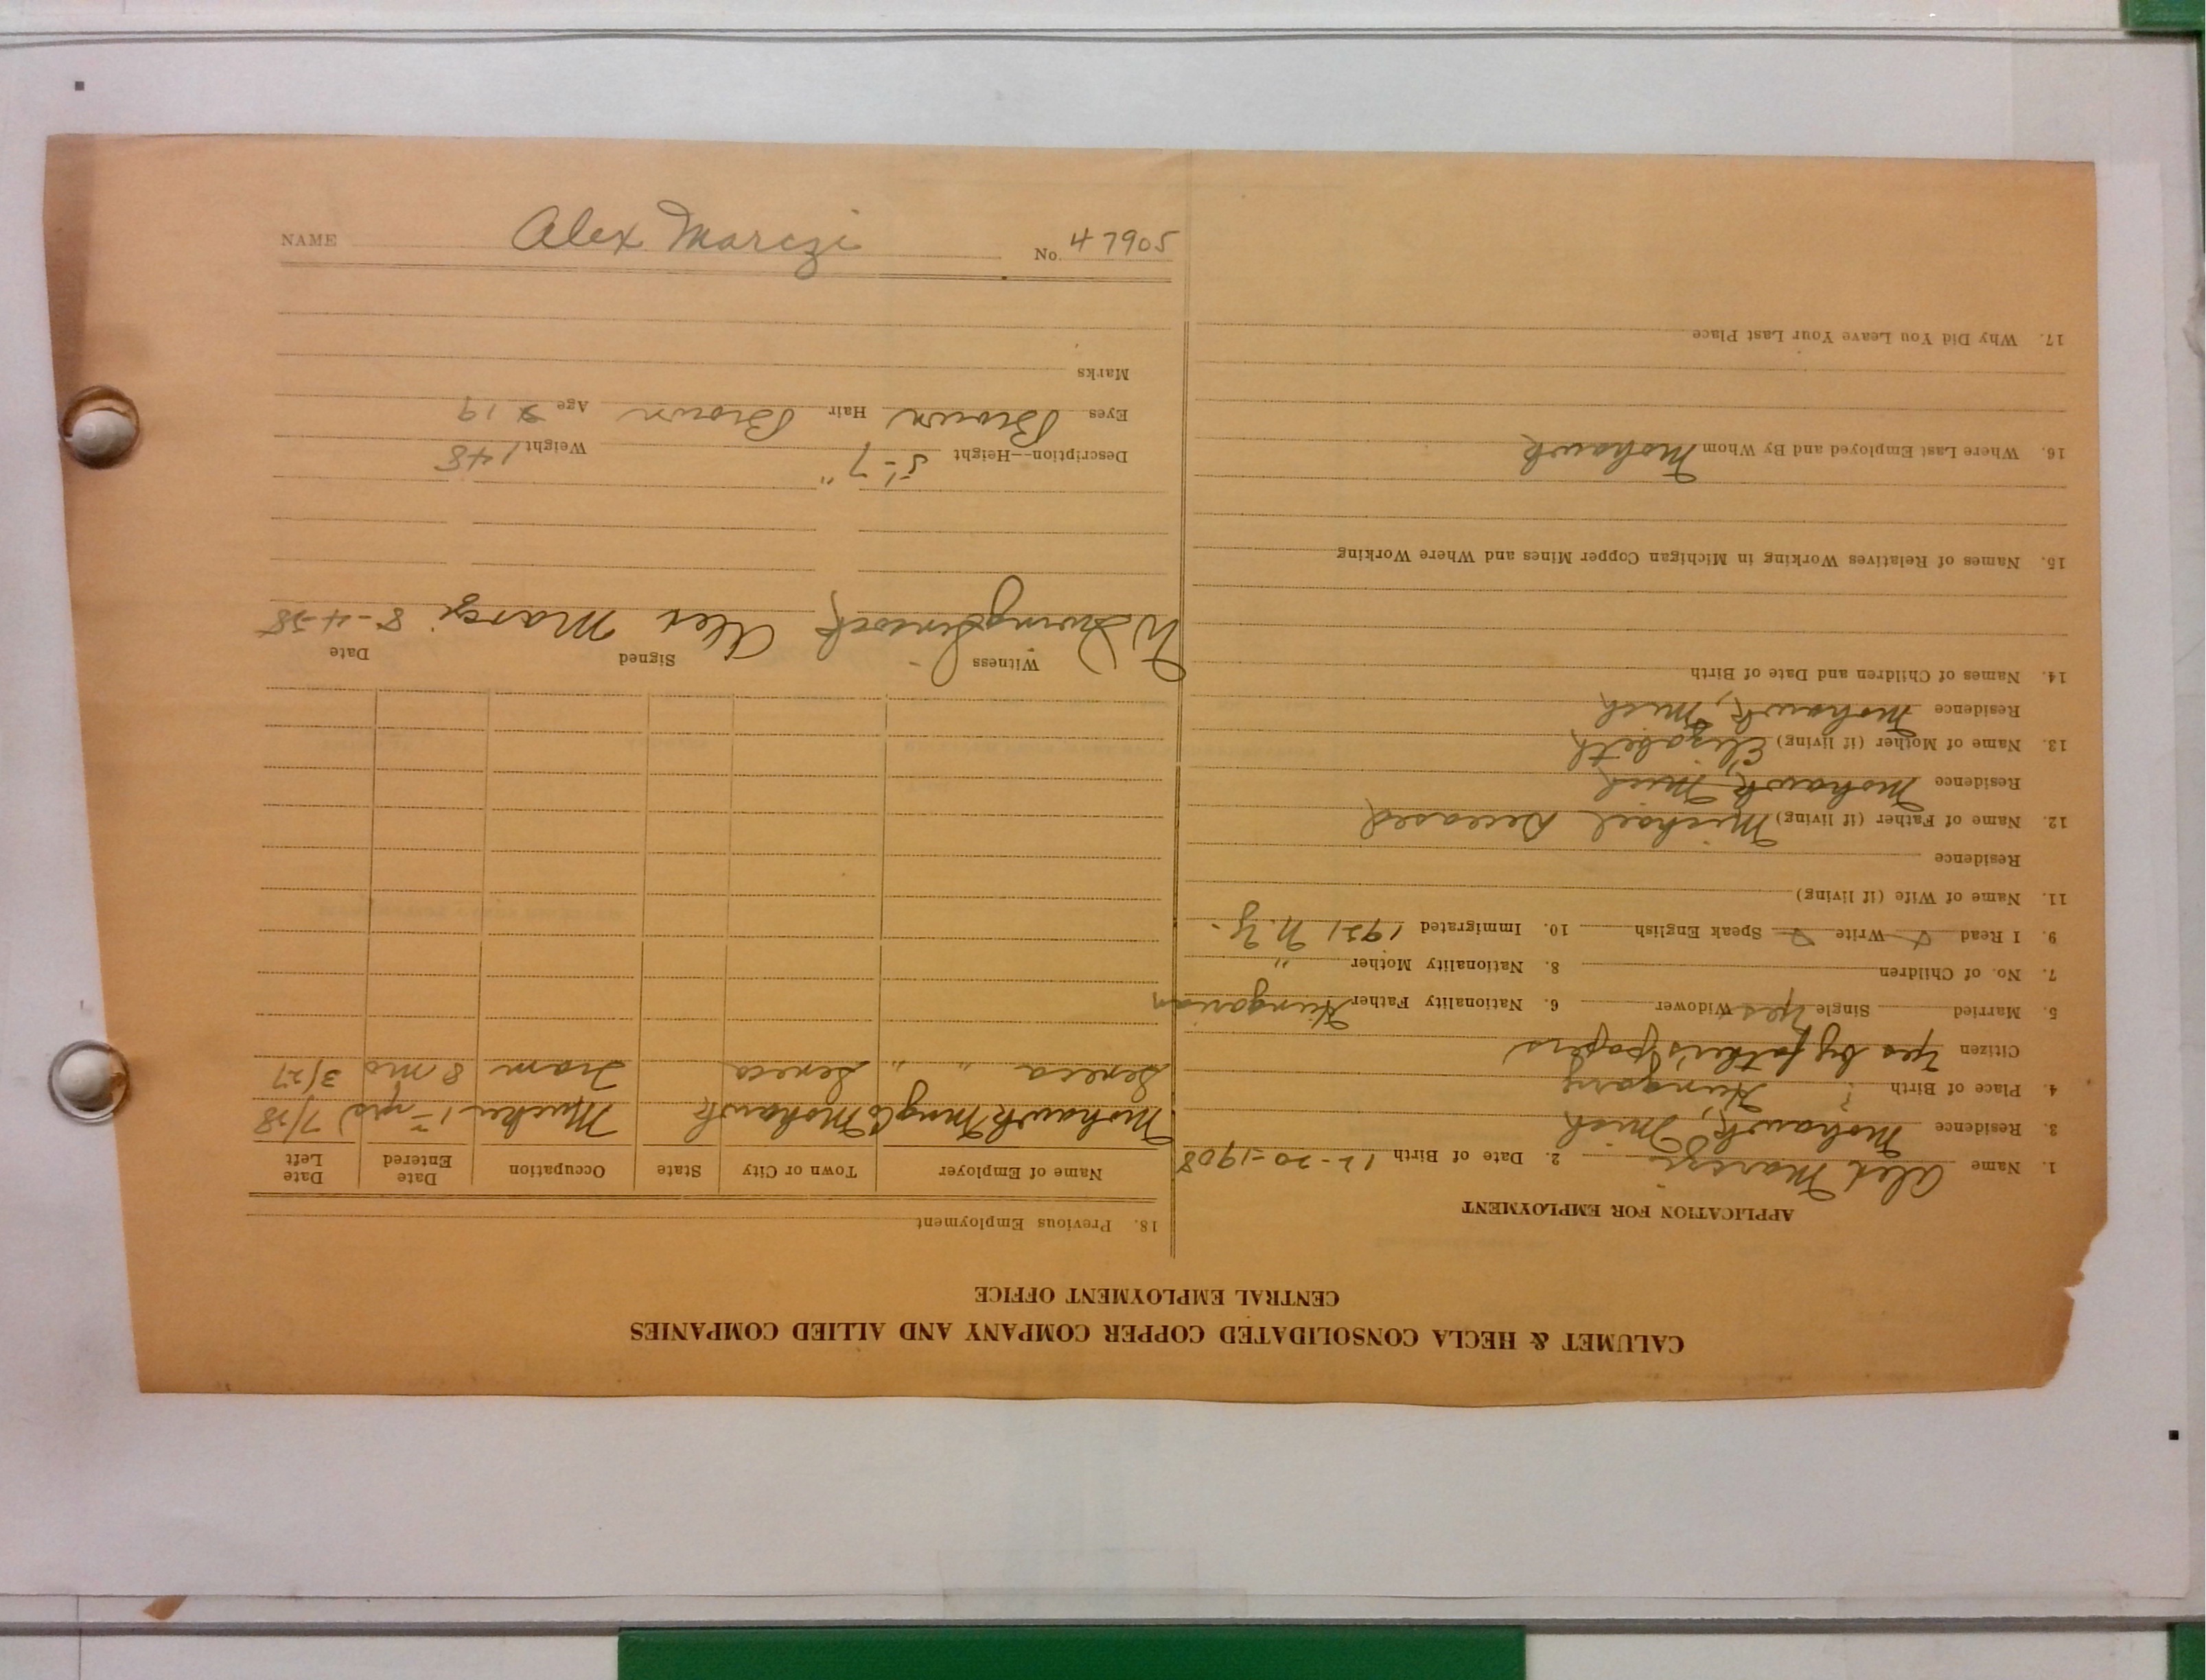 CALUMET & HECLA CONSOLIDATED COPPER COMPANY AND ALLIED COMPANIES
CENTRAL EMPLOYMENT OFFICE
APPLICATION FOR EMPLOYMENT
1. Name Alex Marczi 2. Date of Birth 12-20-1908
3. Residence Mohawk, Mich
4. Place of Birth ? Hungary
Citizen Yes by father's papers
5. Married Single Yes Widower 6. Nationality Father Hungarian
7. No. of Children 8. Nationality Mother "
9. I Read Write Speak English 10. Immigrated 1921 N.Y.
11. Name of Wife (if living)
Residence
12. Name of Father (if living) Michael Deceased
Residence Mohawk, Mich
13. Name of Mother (if living) Elizabeth
Residence Mohawk, Mich
14. Names of Children and Date of Birth
15. Names of Relatives Working in Michigan Copper Mines and Where Working
16. Where Last Employed and By Whom Mohawk
17. Why Did You Leave Your Last Place
18. Previous Employment
Name of Employer Town or City State Occupation Date Entered Date Left
Mohawk Mng Co Mohawk 7/28
Seneca " " Seneca Tram 8 mo 3/27
Witness Signed Date
Alex Marczi 8-4-28
Description—Height 5'-7" Weight 148
Eyes Brown Hair Brown Age 19
Marks
NAME Alex Marczi No. 47905